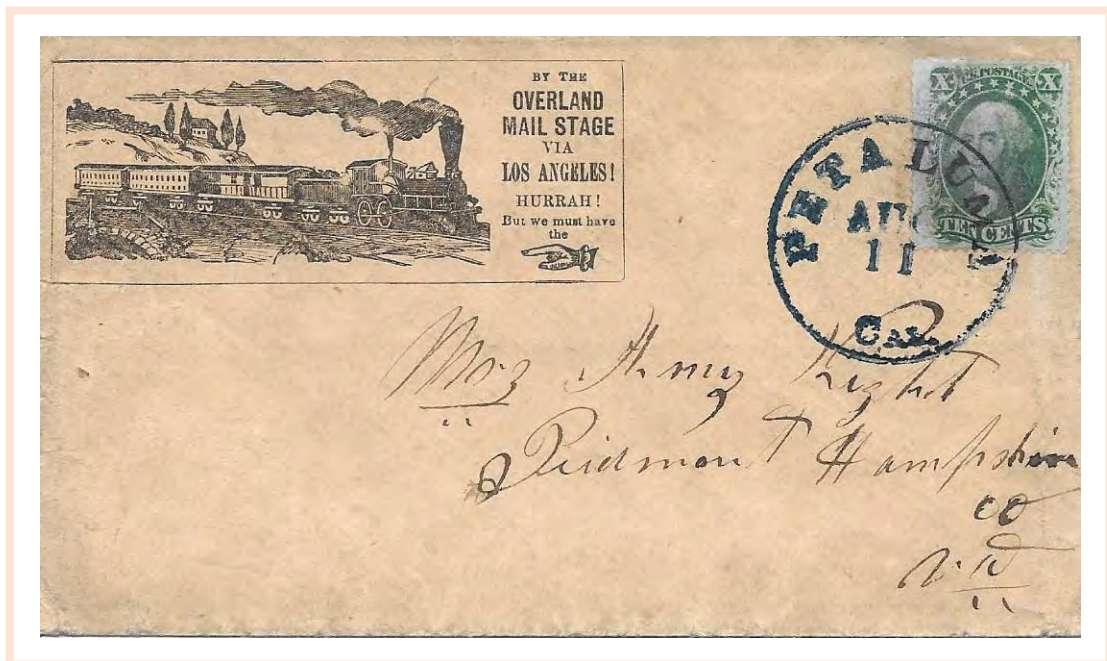 BY THE
OVERLAND
MAIL STAGE
VIA
LOS ANGELES!
HURRAH!
But we must have
the
X U.S. POSTAGE X
TEN CENTS
PETALUMA
AUG
11
Cal.
Mrs Amy
Piedmont Hampshire
co